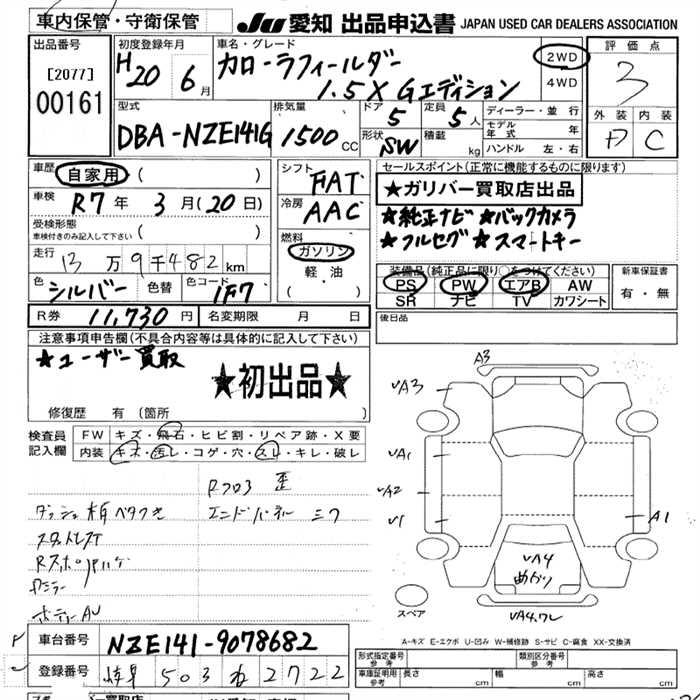 車内保管・守衛保管
JU 愛知 出品申込書 JAPAN USED CAR DEALERS ASSOCIATION
出品番号
[2077]
00161
初度登録年月
H20 6月
車名・グレード
カローラフィールダー
1.5X Gエディション
2WD
4WD
評価点
3
外装 内装
C
型式
DBA-NZE141G
排気量
1500 CC
ドア
5
形状
SW
定員
5人
積載
kg
ディーラー・並行
モデル年式 年
ハンドル 左・右
車歴
自家用 ( )
車検
R7年 3月(20日)
受検形態
車検付きのみ記入して下さい ( )
走行
13万9千482km
色
シルバー
色替
色コード
1F7
シフト
FAT
冷房
AAC
燃料
ガソリン
軽・油
( )
セールスポイント(正常に機能するものに限ります)
★ガリバー買取店出品
★純正ナビ ★バックカメラ
★フルセグ ★スマートキー
装備品(純正品に限り○をつけてください)
PS PW エアB AW
SR ナビ TV カワシート
新車保証書
有・無
R券 11,730円
名変期限 月 日
後日品
注意事項申告欄(不具合内容等は具体的に記入して下さい)
★ユーザー買取
★初出品★
修復歴 有 (箇所 )
検査員記入欄
FW キズ・飛石・ヒビ割・リペア跡・X要
内装 キズ・汚レ・コゲ・穴・スレ・キレ・破レ
Rフロ3 歪
エンドパネー ミフ
A3
A3
A1
A2
A1
A4
曲がり
スペア
A-キズ E-エクボ U-凹み W-補修跡 S-サビ C-腐食 XX-交換済
車台番号 NZE141-9078682
登録番号 岐阜 503 ね 2722
形式指定番号 参考
類別区分番号 参考
車庫証明用 参考 長さ cm 幅 cm 高さ cm